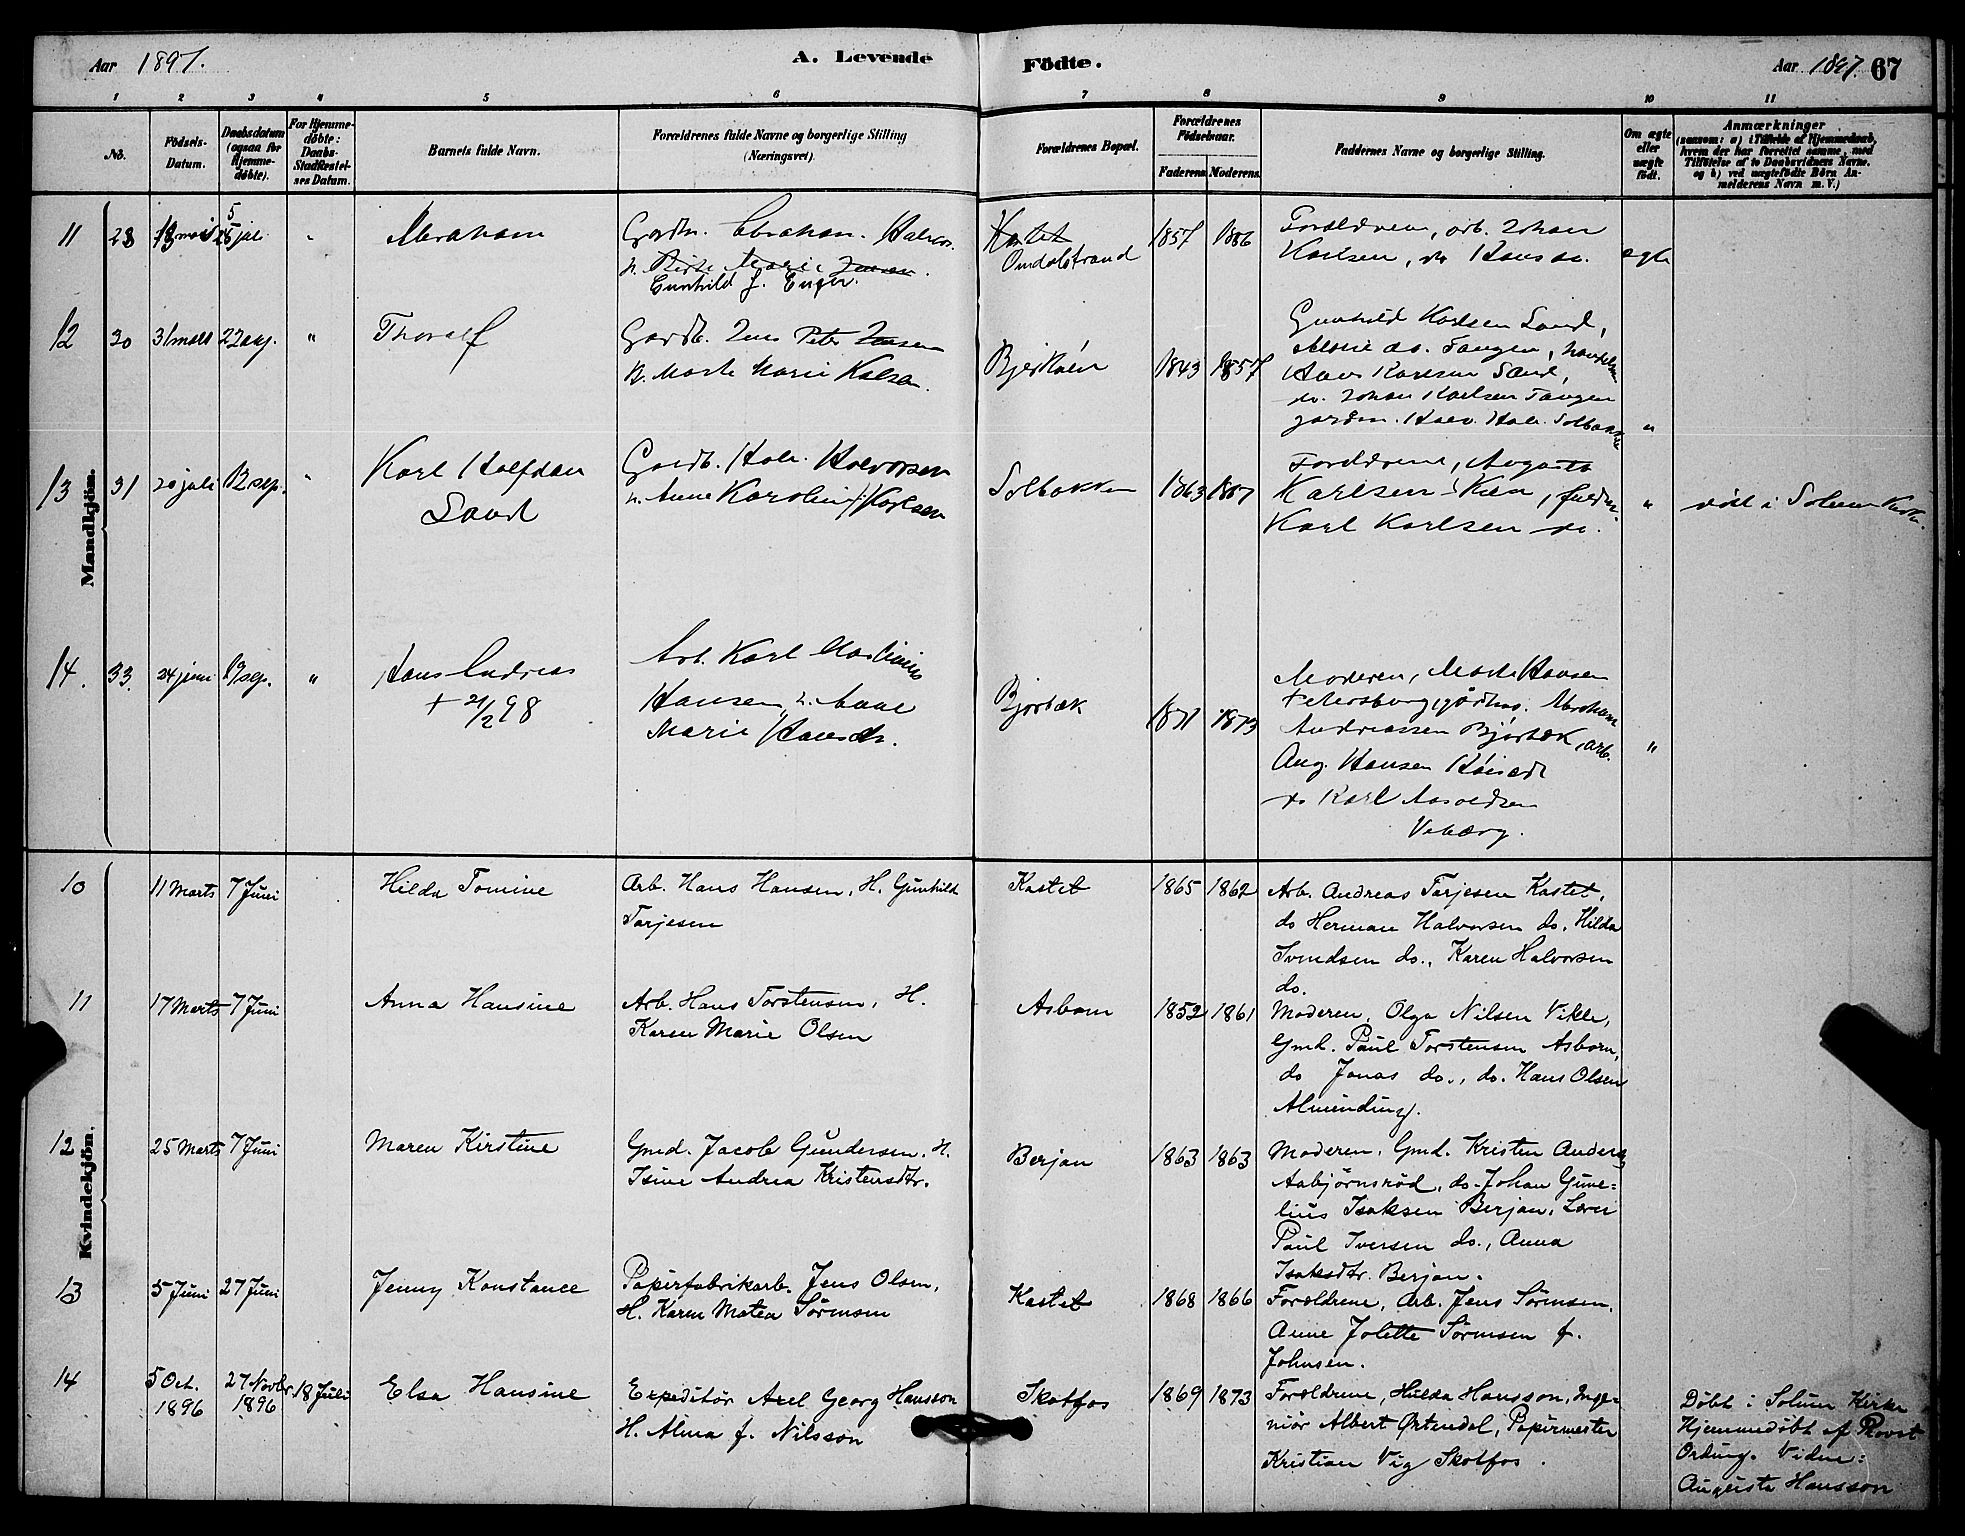 Aar 1897.
A. Levende
Födte.
Aar 1897.
67
1 2 3 4 5 6 7 8 9 10 11
No.
Födsels-
Datum.
Daabsdatum
(ogsaa for
Hjemme-
döbte).
For Hjemme-
döbte:
Daabs-
Stadfæstel-
ses Datum.
Barnets fulde Navn.
Forældrenes fulde Navne og borgerlige Stilling
(Næringsvei).
Forældrenes Bopæl.
Forældrenes
Födselsaar.
Faderens. Moderens.
Faddernes Navne og borgerlige Stilling.
Om ægte
eller
uægte
födt.
Anmærkninger
(saasom: a) i Tilfælde af Hjemmedaab,
hvem der har forrettet samme, med
Tilföielse af to Daabsvidners Navne.
og b) ved uægtefödte Börn An-
melderens Navn m. V.)
Mandkjön.
11 28
5
juli
Abraham
Gunhild f.
Omdalstrand
1857 1866
Forældrene, arb. Johan
Karlsen, do
ægte
12 30 31 mars 22 aug. "
Thoralf
Gardb. Jens Peter Jensen
Marie
1843 1857
Gunhild Karlsen Sand,
do. Tangen,
Hans Karlsen Sand,
do. Johan Karlsen Tangen
"
13 31 20 juli 12 sep. "
Karl Halfdan
Sand
Gardb. Halv. Halvorsen
h. Anne Karoline Karlsen
Solbakken
1863 1867
Forældrene, Augusta
Karlsen
Karl Karlsen do.
"
i Solum Kirke.
14. 33. 24 juni 19 sep. "
Hans Andreas
+ 21/2 98
Arb. Karl
Hansen, h.
Marie Hansdr.
Bjørbæk
1871 1873
Moderen, Hansen
Abraham
Andreassen Bjørbæk, arb.
Aug. Hansen
do Karl
"
Kvindekjön.
10
11 Marts 7 Juni
Hilda Tomine
Arb. Hans Hansen, H. Gunhild
Tarjesen
Kastet
1865 1862
Arb. Andreas Tarjesen Kastet,
do Herman Halvorsen do. Hilda
Svendsen do., Karen Halvorsen
do.
11
17 Marts 7 Juni
Anna Hansine
Arb. Hans Torstensen, H.
Karen Marie Olsen
Asborn
1852 1861
Moderen, Olga Nilsen Vikle,
Gmd. Paul Torstensen Asborn,
do Jonas do., do. Hans Olsen
Alminding.
12
25 Marts 7 Juni
Maren Kirstine
Gmd. Jacob Gundersen, H.
Isine Andrea Kristensdtr.
Berjan
1863 1863
Moderen, Gmd. Kristen Anders.
Aabjørnsrød, do. Johan Gune-
lius Isaksen Berjan, Lærer
Paul Iversen do., Anna
Isaksdtr. Berjan.
13
5 Juni 27 Juni
Jenny Konstance
Papirfabrikarb. Jens Olsen,
H. Karen Matea Sørensen
Kastet
1868 1866
Forældrene, Arb. Jens Sørensen,
Anne Jolette Sørensen f.
Johnsen.
14
5 Oct.
1896
27 Novbr.
1896
18 Juli
Elsa Hansine
Expeditör Axel Georg Hansson
H. Alma f. Nilsson
Skotfos
1869 1873
Forældrene, Hulda Hansson, Inge-
niør Albert Ørtendal, Papirmester
Kristian Vig Skotfos.
Döbt i Solum Kirke
Hjemmedöbt af Provst
Ording. Vidne:
Augusta Hansson